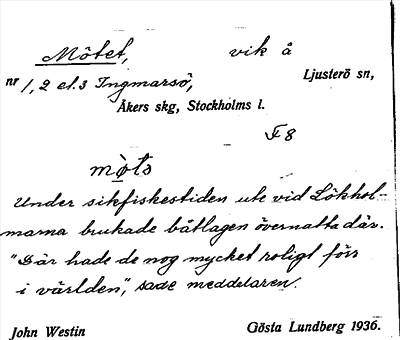 Mötet, vik å
nr 1, 2 el. 3 Ingmarsö, Ljusterö sn,
Åkers skg, Stockholms l.
F 8
mø̀ts
Under sikfiskestiden ute vid Lökhol-
marna brukade båtlagen övernatta där.
"Där hade de nog mycket roligt förr
i världen", sade meddelaren.
John Westin Gösta Lundberg 1936.